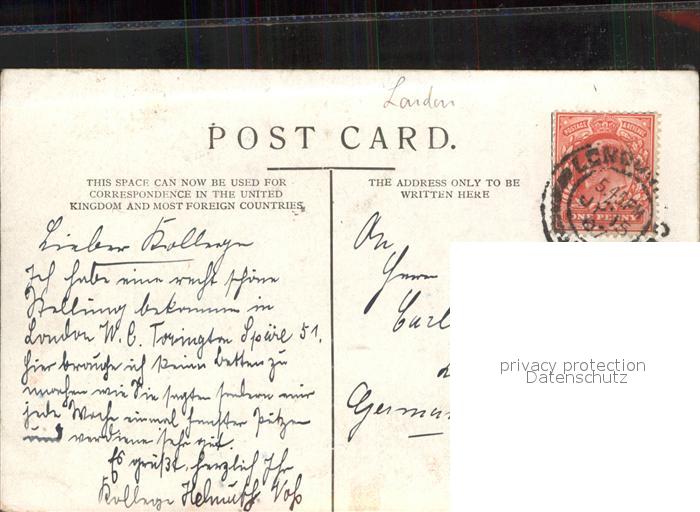 London
POST CARD.
THIS SPACE CAN NOW BE USED FOR
CORRESPONDENCE IN THE UNITED
KINGDOM AND MOST FOREIGN COUNTRIES.
THE ADDRESS ONLY TO BE
WRITTEN HERE
POSTAGE REVENUE
ONE PENNY
LONDON
Lieber Kollege
Ich habe eine recht schöne
Stellung bekommen in
London W. C. Torington Späre 51.
hier brauche ich keine Betten zu
machen wie Sie sagten sondern nur
jede Woche einmal Fenster putzen
und verdiene sehr gut.
Es grüßt herzlich Ihr
Kollege Helmuth Voß
An
Herrn
Carl
German
privacy protection
Datenschutz